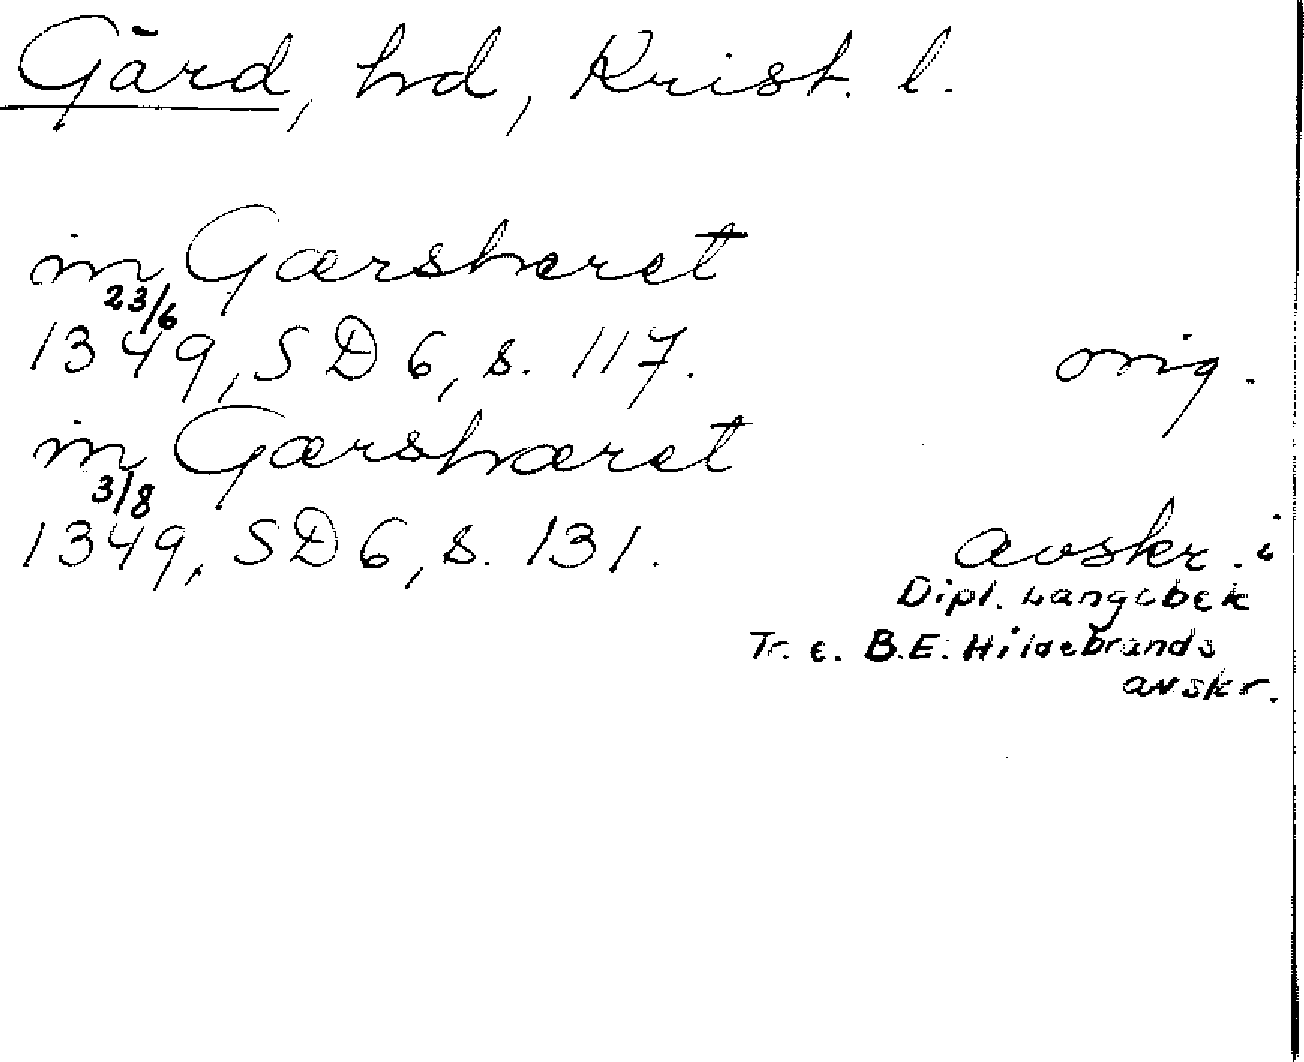 Gärd, hd, Krist. l.
in Gærsheret
23/6
1349, SD 6, s. 117. orig.
in Gærshæret
3/8
1349, SD 6, s. 131. avskr. i
Dipl. Langebek
Tr. e. B.E. Hildebrands
avskr.